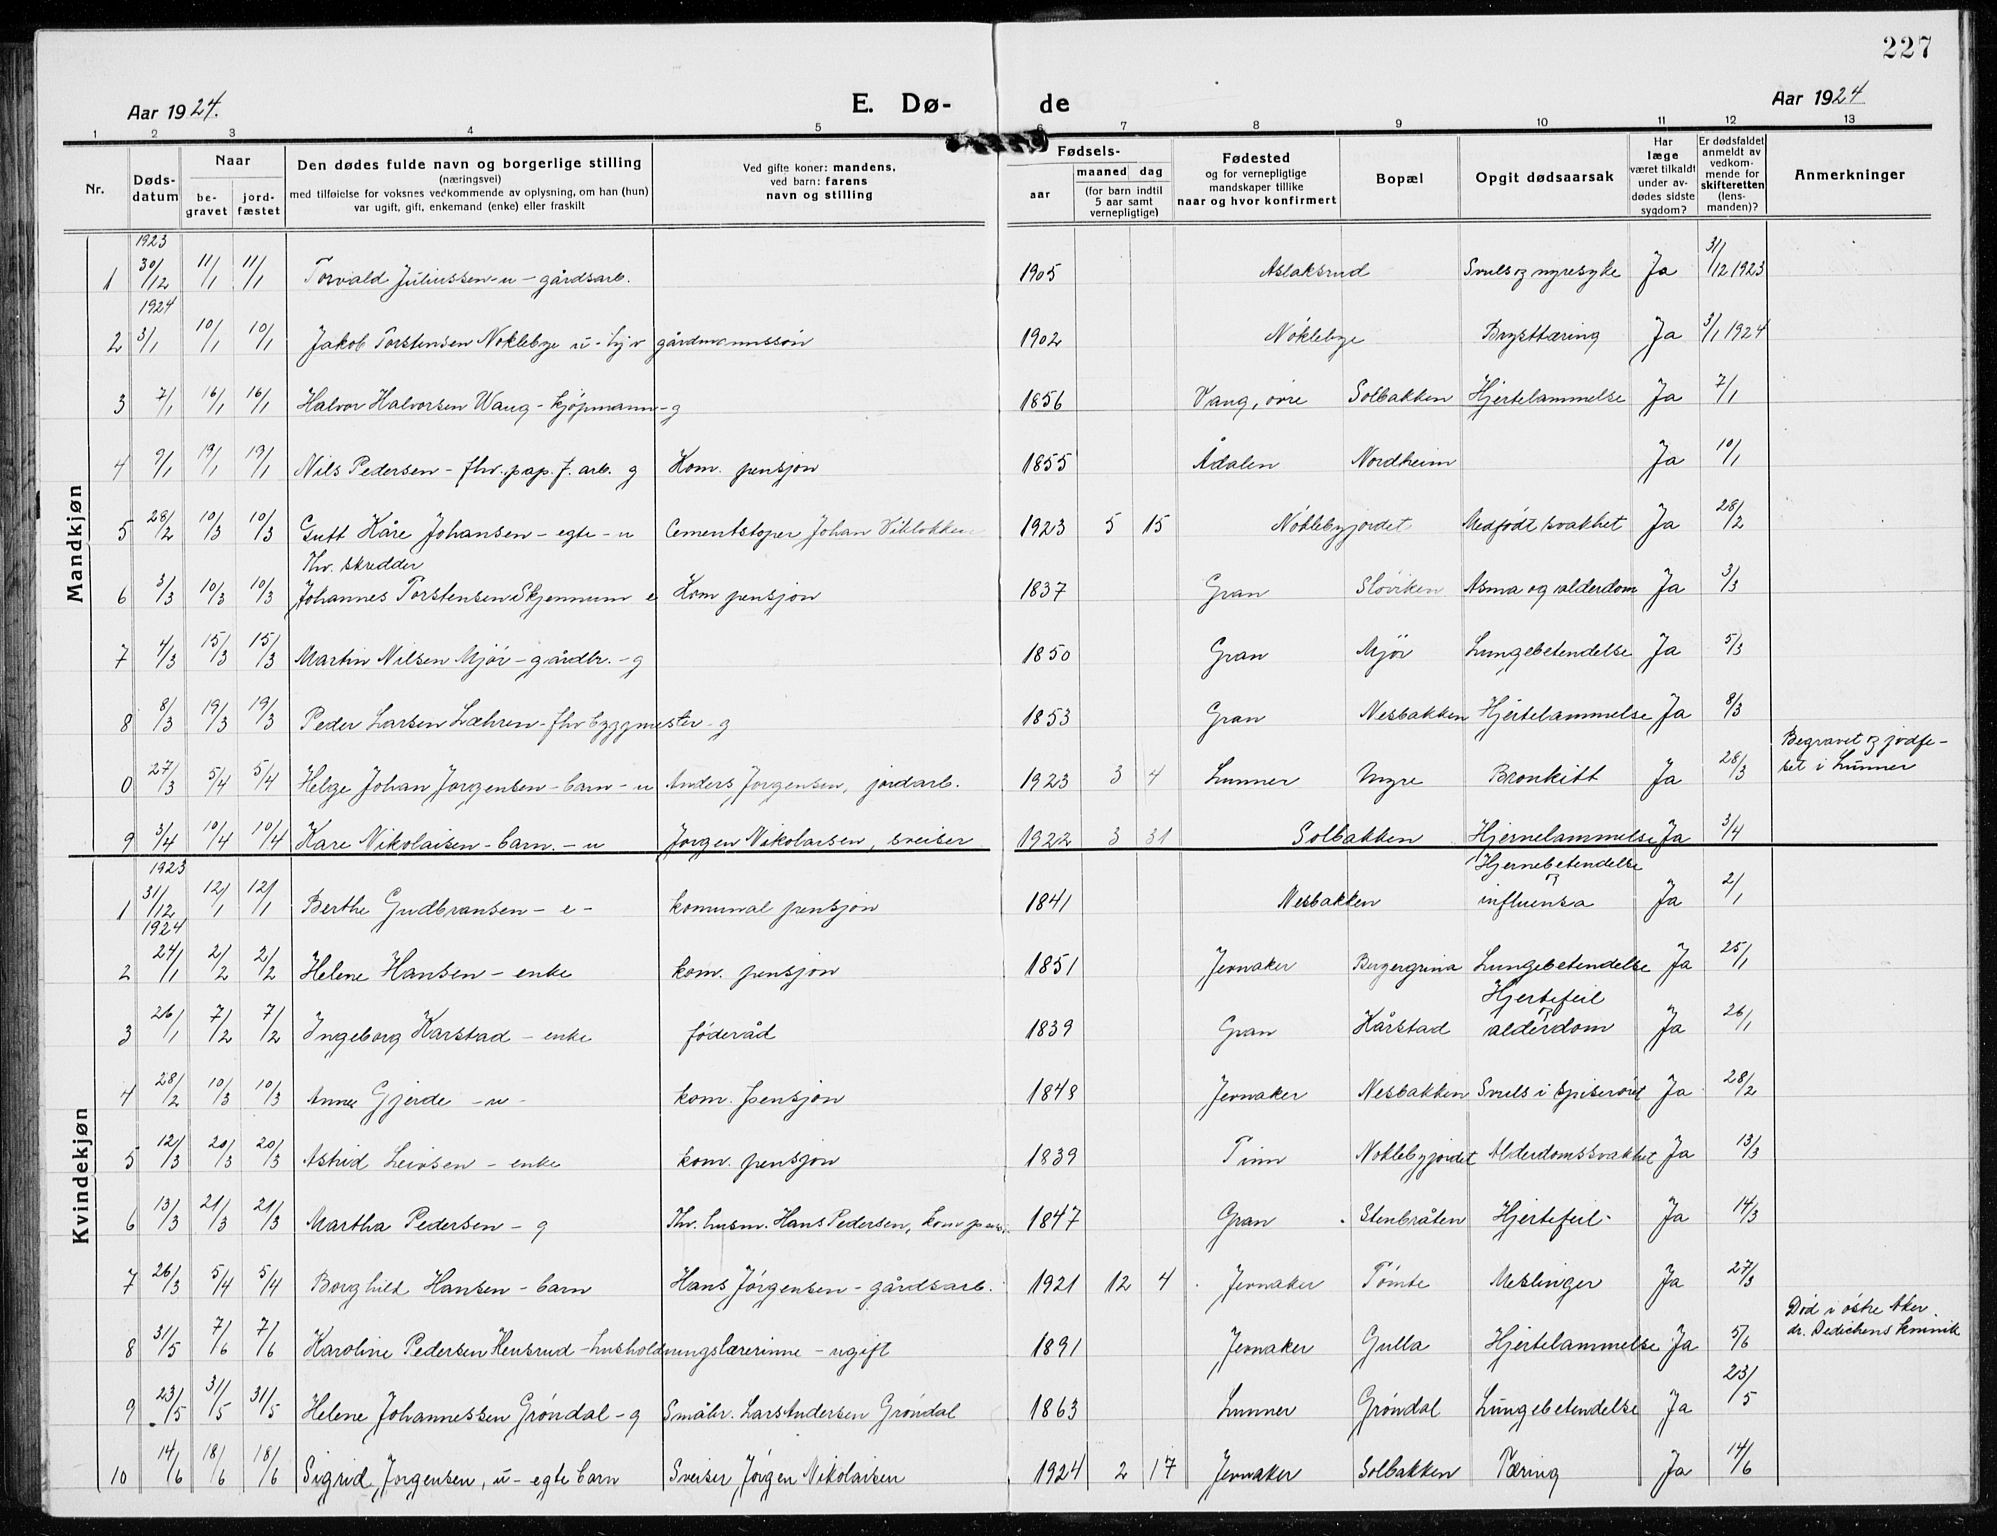 227
Aar 1924. E. Dø- de Aar 1924
1 2 3 4 5 6 7 8 9 10 11 12 13
Nr. Dødsdatum Naar begravet jordfæstet Den dødes fulde navn og borgerlige stilling (næringsvei) med tilføielse for voksnes vedkommende av oplysning, om han (hun) var ugift, gift, enkemand (enke) eller fraskilt Ved gifte koner: mandens, ved barn: farens navn og stilling Fødsels- aar maaned dag (for barn indtil 5 aar samt vernepligtige) Fødested og for vernepligtige mandskaper tillike naar og hvor konfirmert Bopæl Opgit dødsaarsak Har læge været tilkaldt under avdødes sidste sygdom? Er dødsfaldet anmeldt av vedkommende for skifteretten (lensmanden)? Anmerkninger
Mandkjøn
1923
1 30/12 11/1 11/1 Torvald Juliussen - u - gårdsarb. 1905 Aslaksrud Svuls og nyresyke Ja 31/12 1923
1924
2 3/1 10/1 10/1 Jakob Torstensen Nøklebye u - hjv gårdmannssøn 1902 Nøklebye Brysttæring Ja 3/1 1924
3 7/1 16/1 16/1 Halvor Halvorsen Wang - kjøpmann - g 1856 Vang, øvre Solbakken Hjertelammelse Ja 7/1
4 9/1 19/1 19/1 Nils Pedersen - fhv. pap. f. arb. g Kom. pensjon 1855 Ådalen Nordheim Ja 10/1
5 28/2 10/3 10/3 Gutt Kåre Johansen - egte - u Cementstøper Johan 1923 5 15 Nøklebyjordet Medfødt svakhet Ja 28/2
Fhv. skredder
6 3/3 10/3 10/3 Johannes Torstensen Skjennum e Kom pensjon 1837 Gran Sløviken Asma og alderdom Ja 3/3
7 4/3 15/3 15/3 Martin Nilsen Mjør - gårdbr. - g 1850 Gran Mjør Lungebetendelse Ja 5/3
8 8/3 19/3 19/3 Peder Larsen Læhren - fhv byggmester - g 1853 Gran Nesbakken Hjertelammelse Ja 8/3
0 27/3 5/4 5/4 Helge Johan Jørgensen - barn - u Anders Jørgensen, jordarb. 1923 3 4 Lunner Myre Bronkitt Ja 28/3 Begravet og jordfestet i Lunner
9 3/4 10/4 10/4 Kåre Nikolaisen - barn. - u Jørgen Nikolaisen, sveiser 1922 3 31 Solbakken Hjernelammelse Ja 3/4
Kvindekjøn
1923
1 31/12 12/1 12/1 Berthe Gudbransen - e - komunal pensjon 1841 Nesbakken Hjernebetendelse og influensa Ja 2/1
1924
2 24/1 2/2 2/2 Helene Hansen - enke kom. pensjon 1851 Jevnaker Bergergrina Lungebetendelse Ja 25/1
3 26/1 7/2 7/2 Ingeborg Kårstad - enke føderåd 1839 Gran Kårstad Hjertefeil og alderdom Ja 26/1
4 28/2 10/3 10/3 Anne Gjerde - u - kom. pensjon 1848 Jevnaker Nesbakken Svuls i spiserøret Ja 28/2
5 12/3 20/3 20/3 Astrid Leivsen - enke kom. pensjon 1839 Tinn Nøklebyjordet Alderdomssvakhet Ja 13/3
6 13/3 21/3 21/3 Martha Pedersen - g Fhv. husm. Hans Pedersen, kom pensj. 1847 Gran Stenbråten Hjertefeil - Ja 14/3
7 26/3 5/4 5/4 Borghild Hansen - barn Hans Jørgensen - gårdsarb. 1921 12 4 Jevnaker Tømte Meslinger Ja 27/3
8 31/5 7/6 7/6 Karoline Pedersen Hensrud - husholdningslærerinne - ugift 1891 Jevnaker Gulla Hjertelammelse Ja 5/6 Død i østre Aker. dr. Dedichens klinik
9 23/5 31/5 31/5 Helene Johannessen Grøndal - g Småbr. Lars Andersen Grøndal 1863 Lunner Grøndal Lungebetendelse Ja 23/5
10 14/6 18/6 18/6 Sigrid Jørgensen, u - egte barn Sveiser Jørgen Nikolaisen 1924 2 17 Jevnaker Solbakken Tæring Ja 14/6